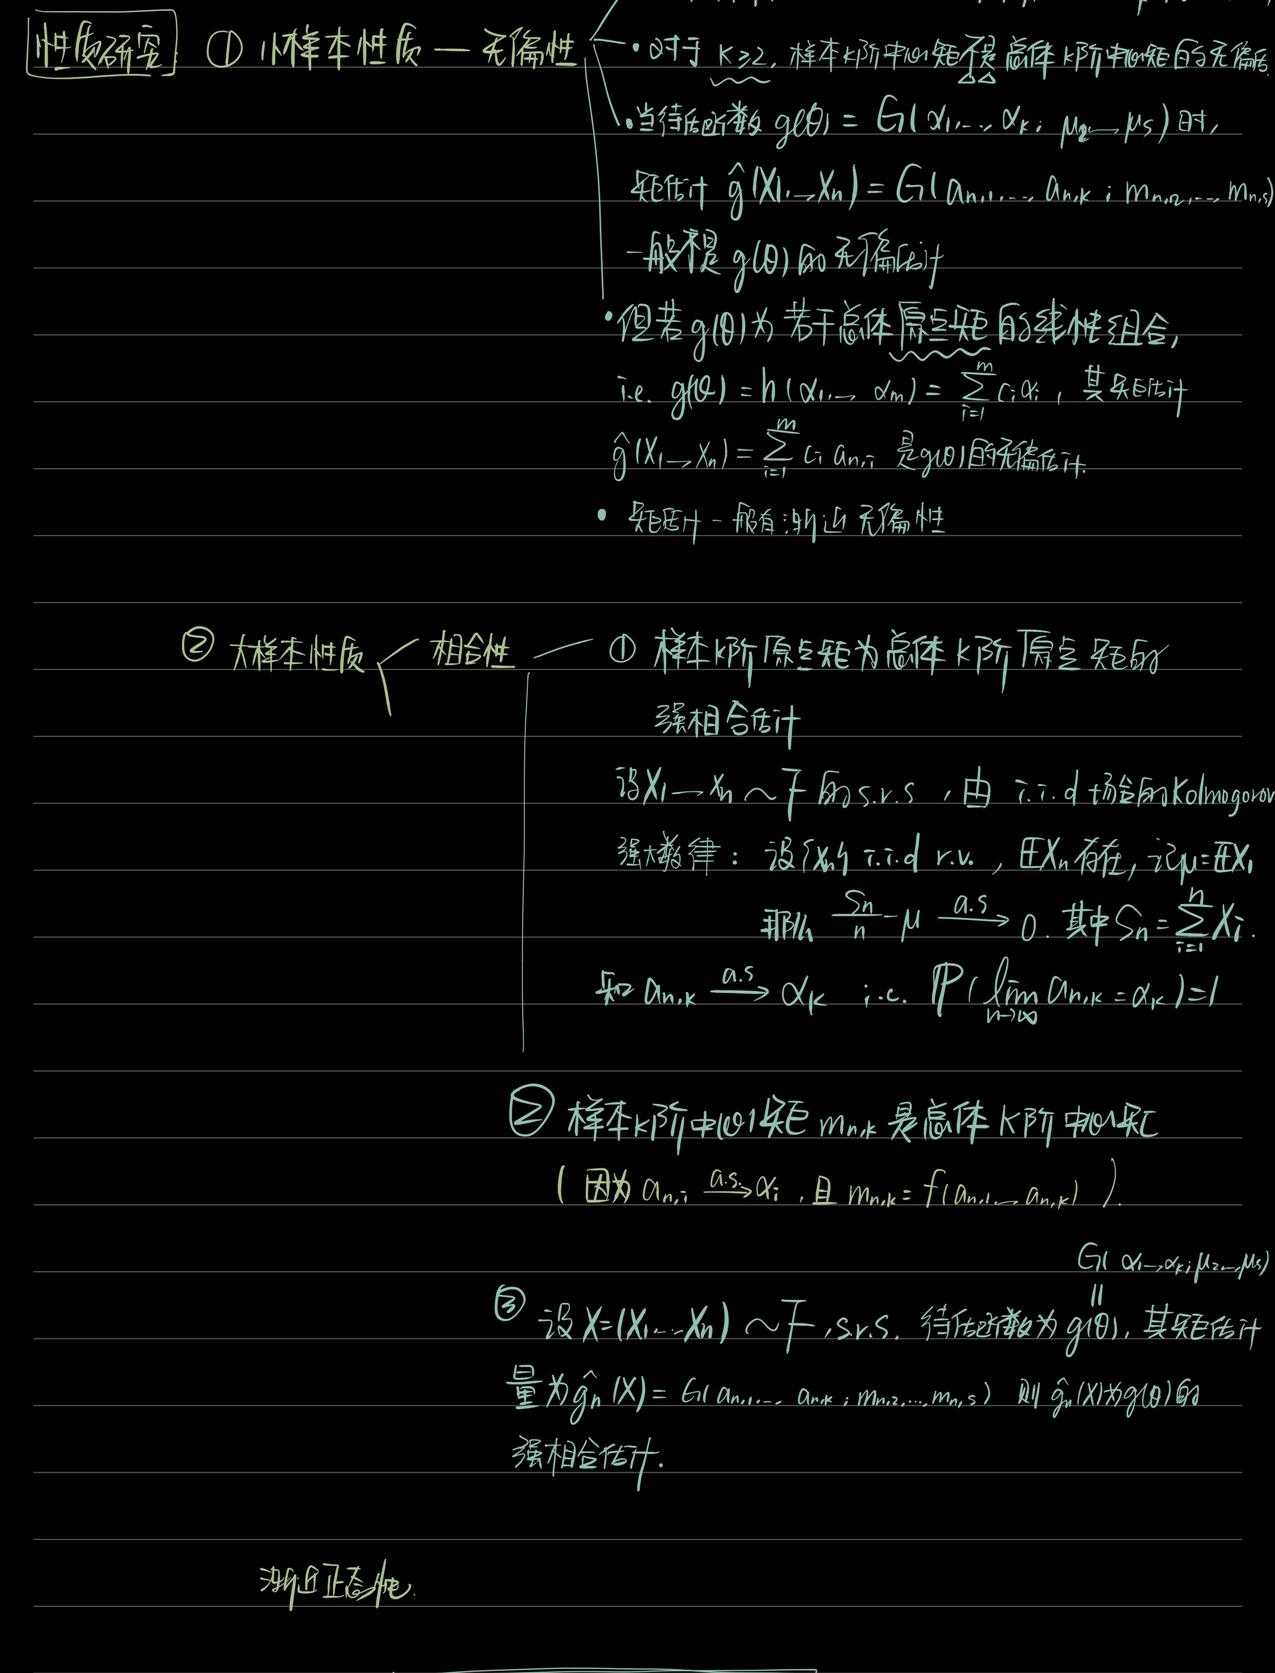 性质研究: ① 小样本性质 — 无偏性
• 对于 K≥2, 样本k阶中心矩不是总体k阶中心矩的无偏估
• 当待估函数 g(θ) = G(α₁,..., αₖ; μ₂,..., μₛ) 时,
矩估计 ĝ(X₁,...,Xₙ) = G(aₙ,₁,..., aₙ,ₖ; mₙ,₂,..., mₙ,ₛ)
一般不是 g(θ) 的无偏估计
• 但若 g(θ) 为若干总体原点矩的线性组合,
i.e. g(θ) = h(α₁,..., αₘ) = ∑ᵢ₌₁ᵐ cᵢαᵢ, 其矩估计
ĝ(X₁,...,Xₙ) = ∑ᵢ₌₁ᵐ cᵢ aₙ,ᵢ 是g(θ)的无偏估计.
• 矩估计一般有渐近无偏性
② 大样本性质 相合性 — ① 样本k阶原点矩为总体k阶原点矩的
强相合估计
设X₁,...,Xₙ ~ F 的 s.r.s, 由 i.i.d 场合的Kolmogorov
强大数律: 设{Xₙ} i.i.d r.v., EXₙ存在, 记μ=EX₁
那么 Sₙ/n - μ →(a.s) 0. 其中 Sₙ = ∑ᵢ₌₁ⁿ Xᵢ.
知 aₙ,ₖ →(a.s) αₖ i.e. P(lim n→∞ aₙ,ₖ = αₖ) = 1
② 样本k阶中心矩 mₙ,ₖ 是总体k阶中心矩
(因为 aₙ,ᵢ →(a.s.) αᵢ, 且 mₙ,ₖ = f(aₙ,₁,..., aₙ,ₖ)).
G(α₁,...,αₖ; μ₂,...,μₛ)
||
③ 设 X=(X₁,...,Xₙ) ~ F, s.r.s. 待估函数为 g(θ), 其矩估计
量为 ĝₙ(X) = G(aₙ,₁,..., aₙ,ₖ; mₙ,₂,..., mₙ,ₛ) 则 ĝₙ(X)为g(θ)的
强相合估计.
渐近正态性.